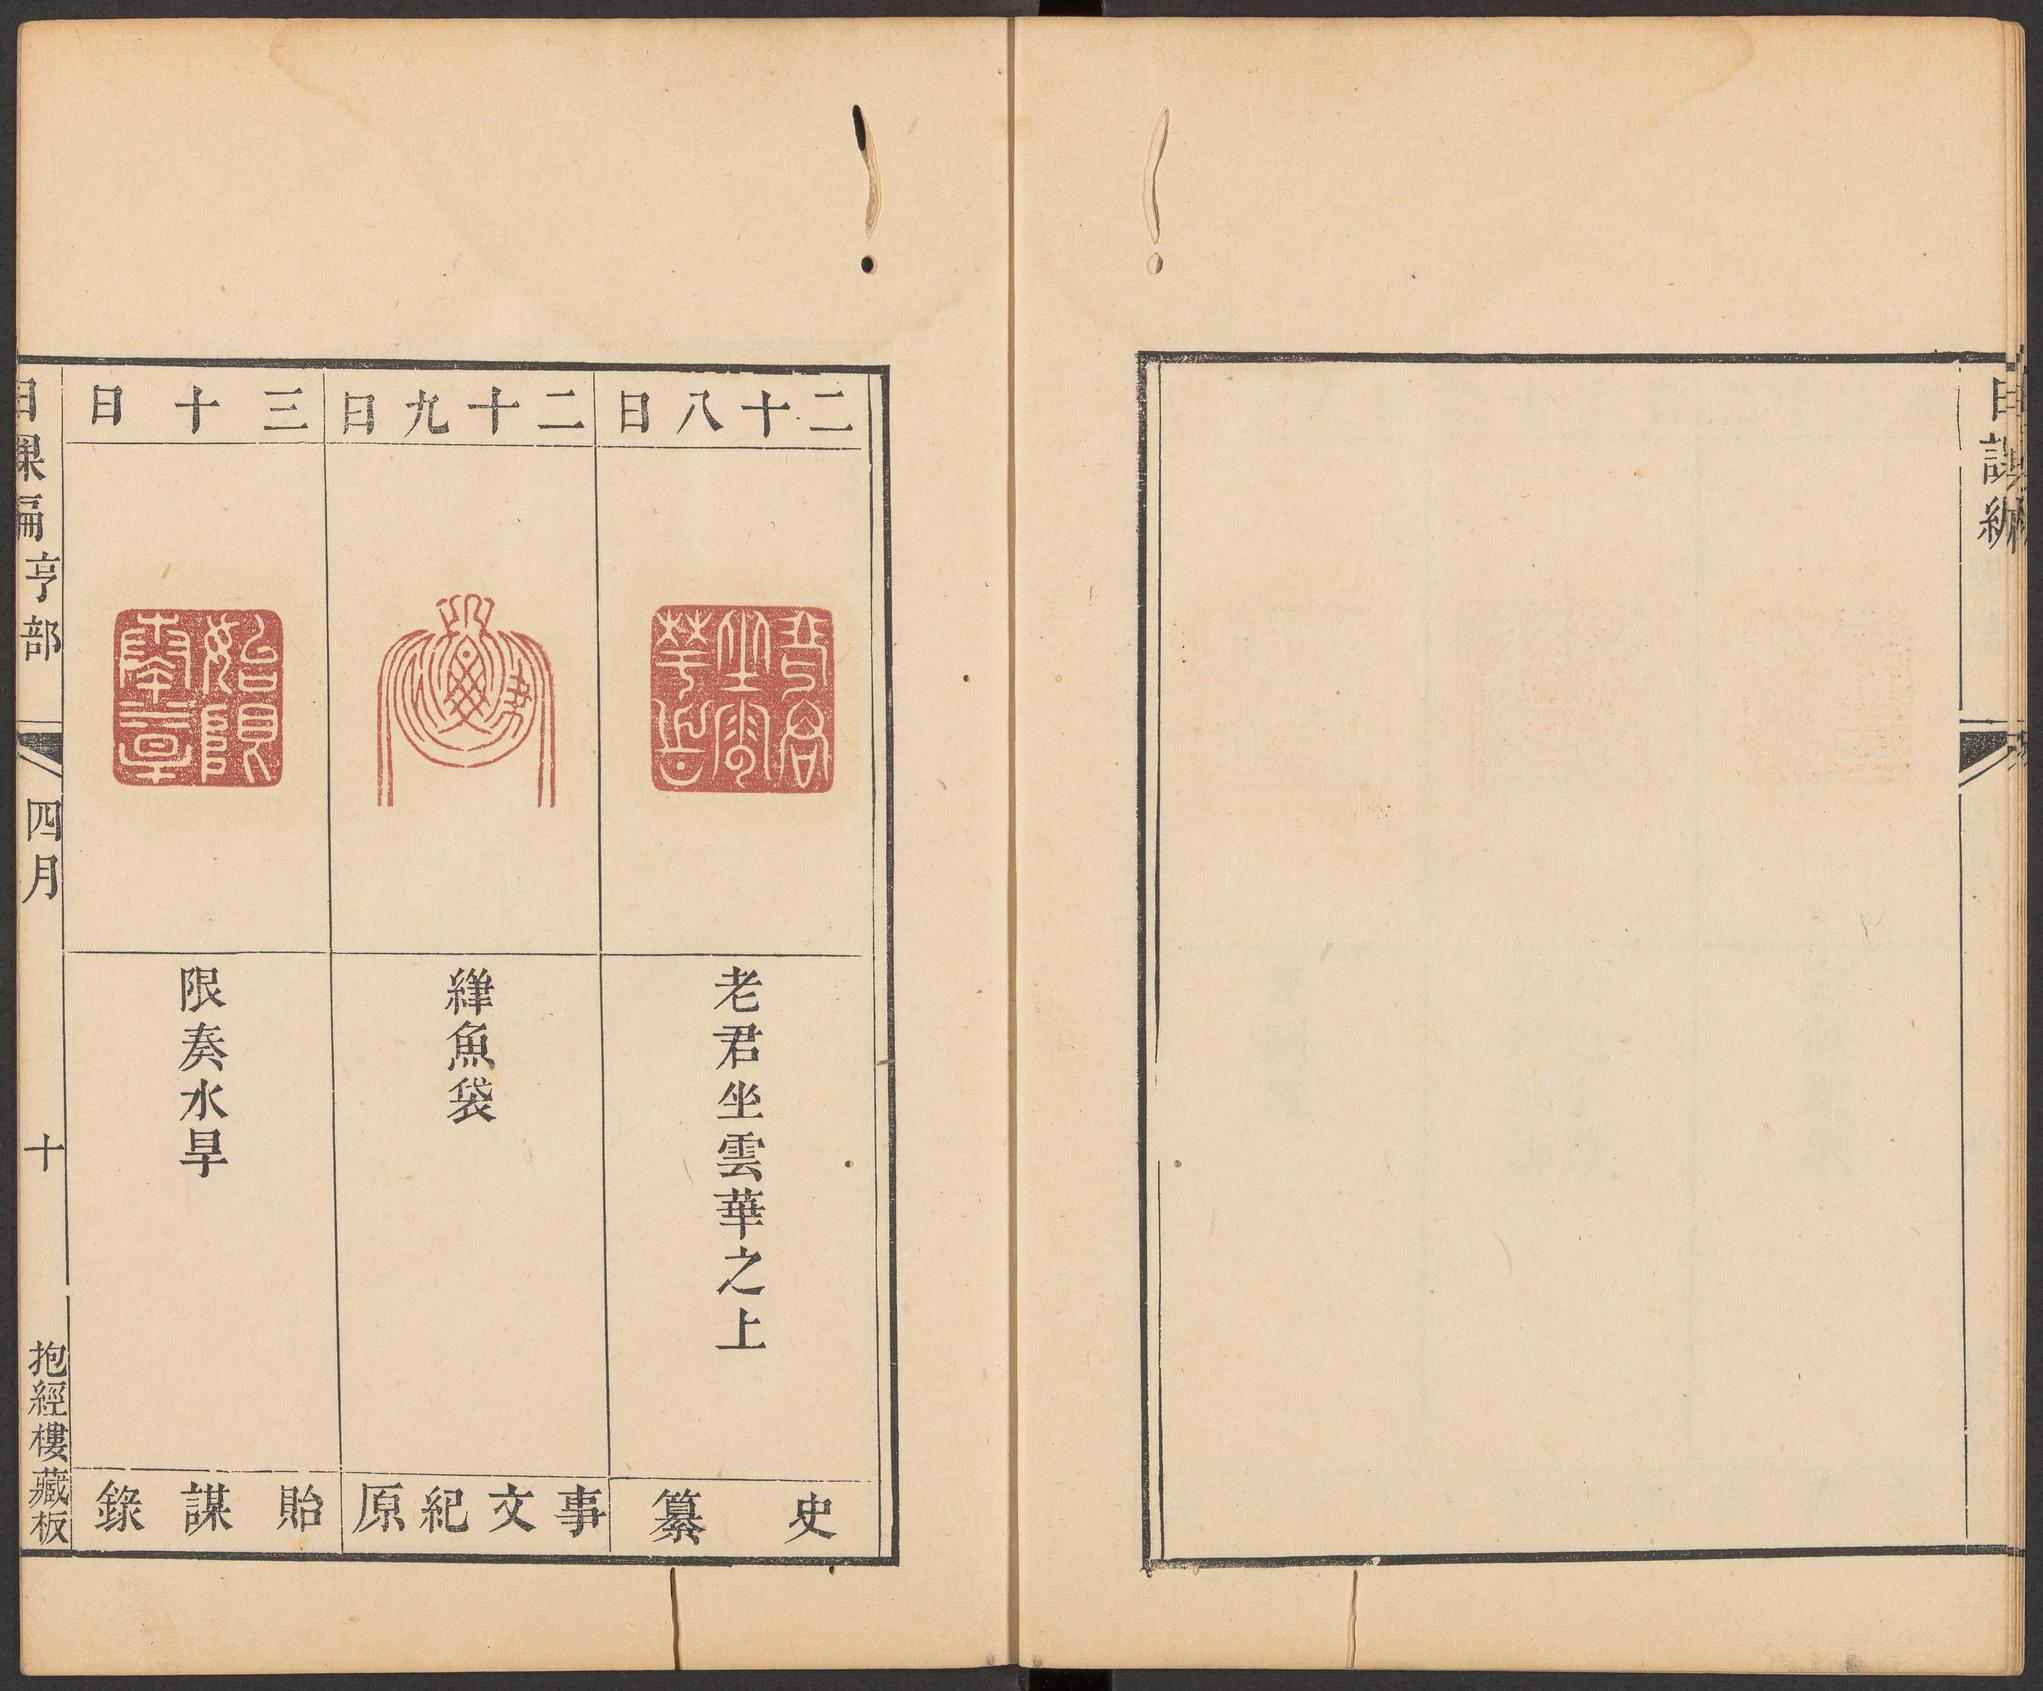 日課編
二十八日
老君坐雲華之上
老君坐雲華之上
史纂
二十九日
魚袋
事文紀原
三十日
始限奏水旱
限奏水旱
貽謀錄
日課編亨部
四月
十
抱經樓藏板